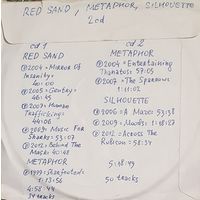 RED SAND, METAPHOR, SILHOUETTE
2cd
cd 1
RED SAND
2004 • Mirror Of
Insanity •
40:00
2005 • Gentry •
46:45
2007 • Human
Trafficking •
44:06
2009 • Music For
Sharks • 53:07
2012 • Behind The
Mask • 40:48
METAPHOR
1999 • Starfooted •
1:13:56
4:58:44
34 tracks
cd 2
METAPHOR
2004 • Entertaining
Thanatos • 57:05
2007 • The Sparrows
• 1:11:02
SILHOUETTE
2006 • A Maze • 53:38
2009 • Moods • 1:18:27
2012 • Across The
Rubicon • 58:34
5:18:49
50 tracks